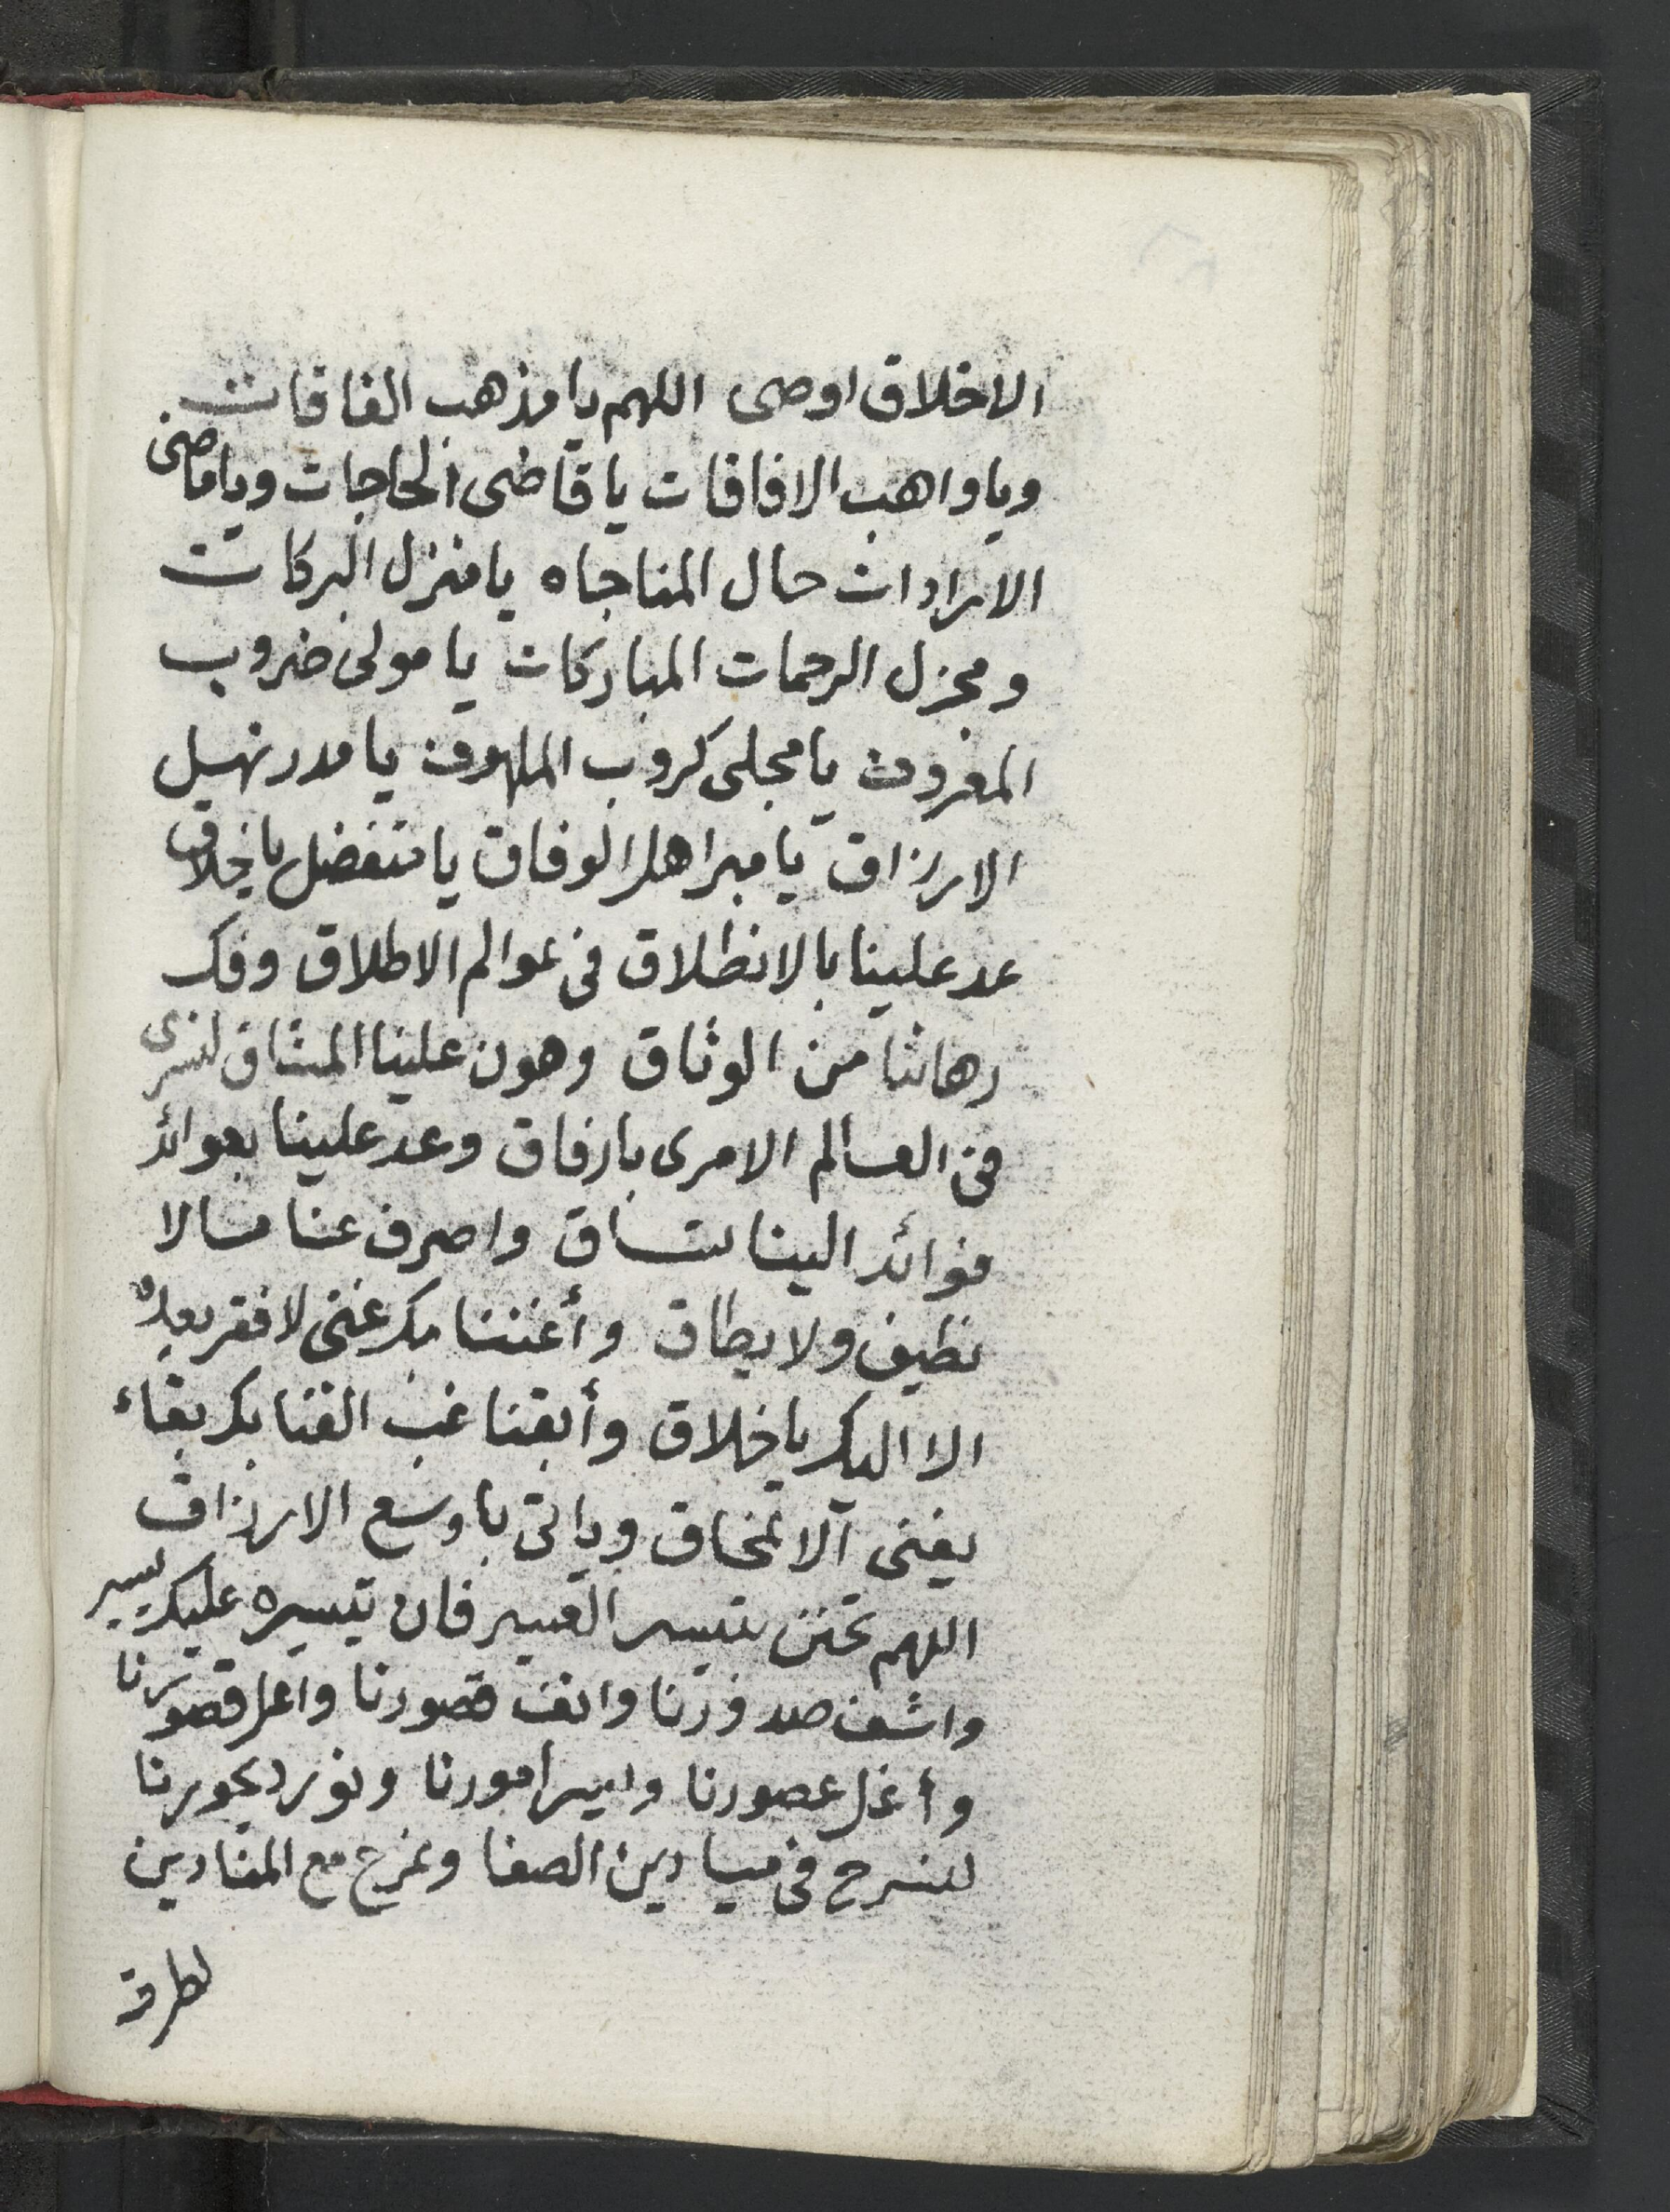 الاخلاق اوصى اللهم يا مذهب الفاقات
ويا واهب الافاقات يا قاضى الحاجات ويا ماضى
الارادات حال المناجاه يا منزل البركات
ومجزل الرحمات المباركات يا مولى ضروب
المعروف يا مجلى كروب الملهوف يا مدر نهيل
الارزاق يا مبر اهل الوفاق يا متفضل يا خلاق
عد علينا بالانطلاق فى عوالم الاطلاق وفك
رهاننا من الوثاق وهون علينا المشاق لنسرى
فى العالم الامرى بارفاق وعد علينا بعوائد
فوائد الينا تساق واصرف عنا ما لا
نطيق ولا يطاق وأغننا بك غنى لا فقر بعده
الا اليك يا خلاق وأبقنا غب الفنا بك بقاء
يفنى آلا نمحاق وياتى يا وسع الارزاق
اللهم تحنن بتيسير العسير فان تيسيره عليك يسير
واشف صدورنا وانف قصورنا واعل قصورنا
وأغل عصورنا ويسر امورنا ونور ديجورنا
لنسرح فى ميادين الصفا ونمرح مع المنادين
لطرق